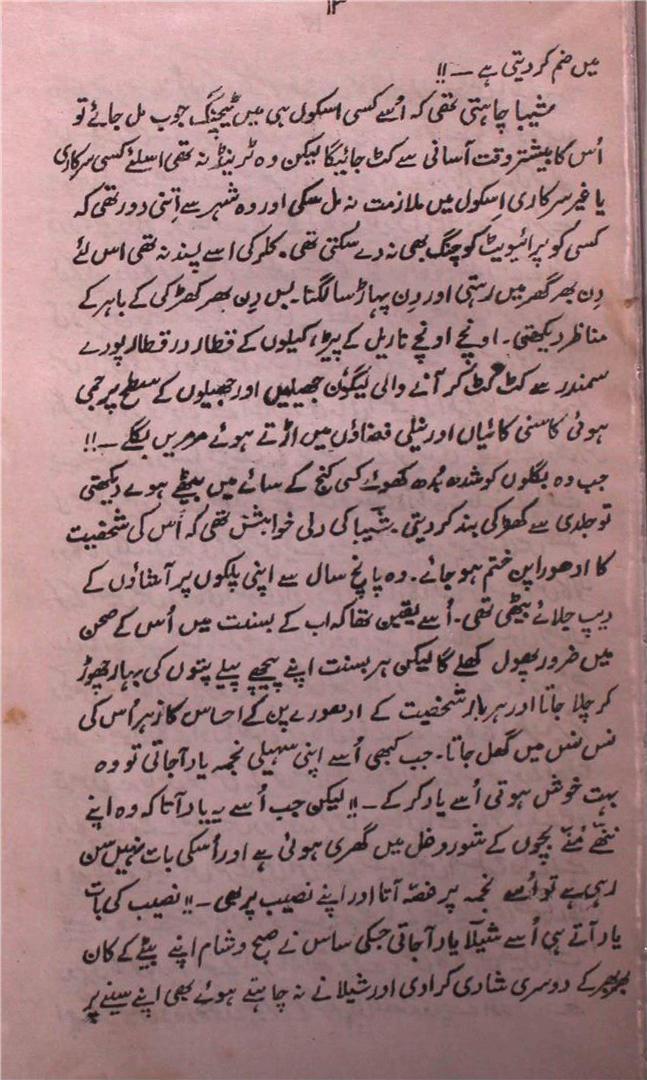 ۱۳
میں ضم کر دیتی ہے ــ !!
شیبا چاہتی تھی کہ اُسے کسی اسکول ہی میں ٹیچنگ جوب مل جائے تو
اُس کا بیشتر وقت آسانی سے کٹ جائیگا لیکن وہ ٹرینڈ نہ تھی اسلئے کسی سرکاری
یا غیر سرکاری اِسکول میں ملازمت نہ مل سکی اور وہ شہر سے اِتنی دور تھی کہ
کسی کو پرائیویٹ کوچنگ بھی نہ دے سکتی تھی۔ کلرکی اسے پسند نہ تھی اس لئے
دِن بھر گھر میں رہتی اور دِن پہاڑ سا لگتا۔ بس دِن بھر کھڑکی کے باہر کے
مناظر دیکھتی۔ اونچے اونچے ناریل کے پیڑ، کیلوں کے قطار در قطار پورے
سمندر سے کٹ کٹ کر آنے والی لیگوئن جھیلیں اور جھیلوں کے سطح پر جمی
ہوئی کاسنی کائیاں اور نیلی فضاؤں میں اڑتے ہوئے مرمریں بگلے ــ !!
جب وہ بگلوں کو سُدھ بُدھ کھوئے کسی کنج کے سائے میں بیٹھے ہوے دیکھتی
تو جلدی سے کھڑکی بند کر دیتی۔ شیبا کی دلی خواہش تھی کہ اُس کی شخصیت
کا ادھورا پن ختم ہو جائے۔ وہ پانچ سال سے اپنی پلکوں پر آشاؤں کے
دیپ جلائے بیٹھی تھی۔ اُسے یقین تھا کہ اب کے بسنت میں اُس کے صحن
میں ضرور پھول کھلے گا لیکن ہر بسنت اپنے پیچھے پیلے پتوں کی بہار چھوڑ
کر چلا جاتا اور ہر بار شخصیت کے ادھورے پن کے احساس کا زہر اُس کی
نس نس میں گھل جاتا۔ جب کبھی اُسے اپنی سہیلی نجمہ یاد آجاتی تو وہ
بہت خوش ہوتی اُسے یاد کر کے ــ !! لیکن جب اُسے یہ یاد آتا کہ وہ اپنے
ننھے مُنے بچوں کے شور و غل میں گھری ہوئی ہے اور اُسکی بات نہیں سن
رہی ہے تو اُسے نجمہ پر غصّہ آتا اور اپنے نصیب پر بھی ــ !! نصیب کی بات
یاد آتے ہی اُسے شیلا یاد آجاتی جسکی ساس نے صبح و شام اپنے بیٹے کے کان
بھر بھر کے دوسری شادی کرا دی اور شیلا نے نہ چاہتے ہوئے بھی اپنے سینے پر